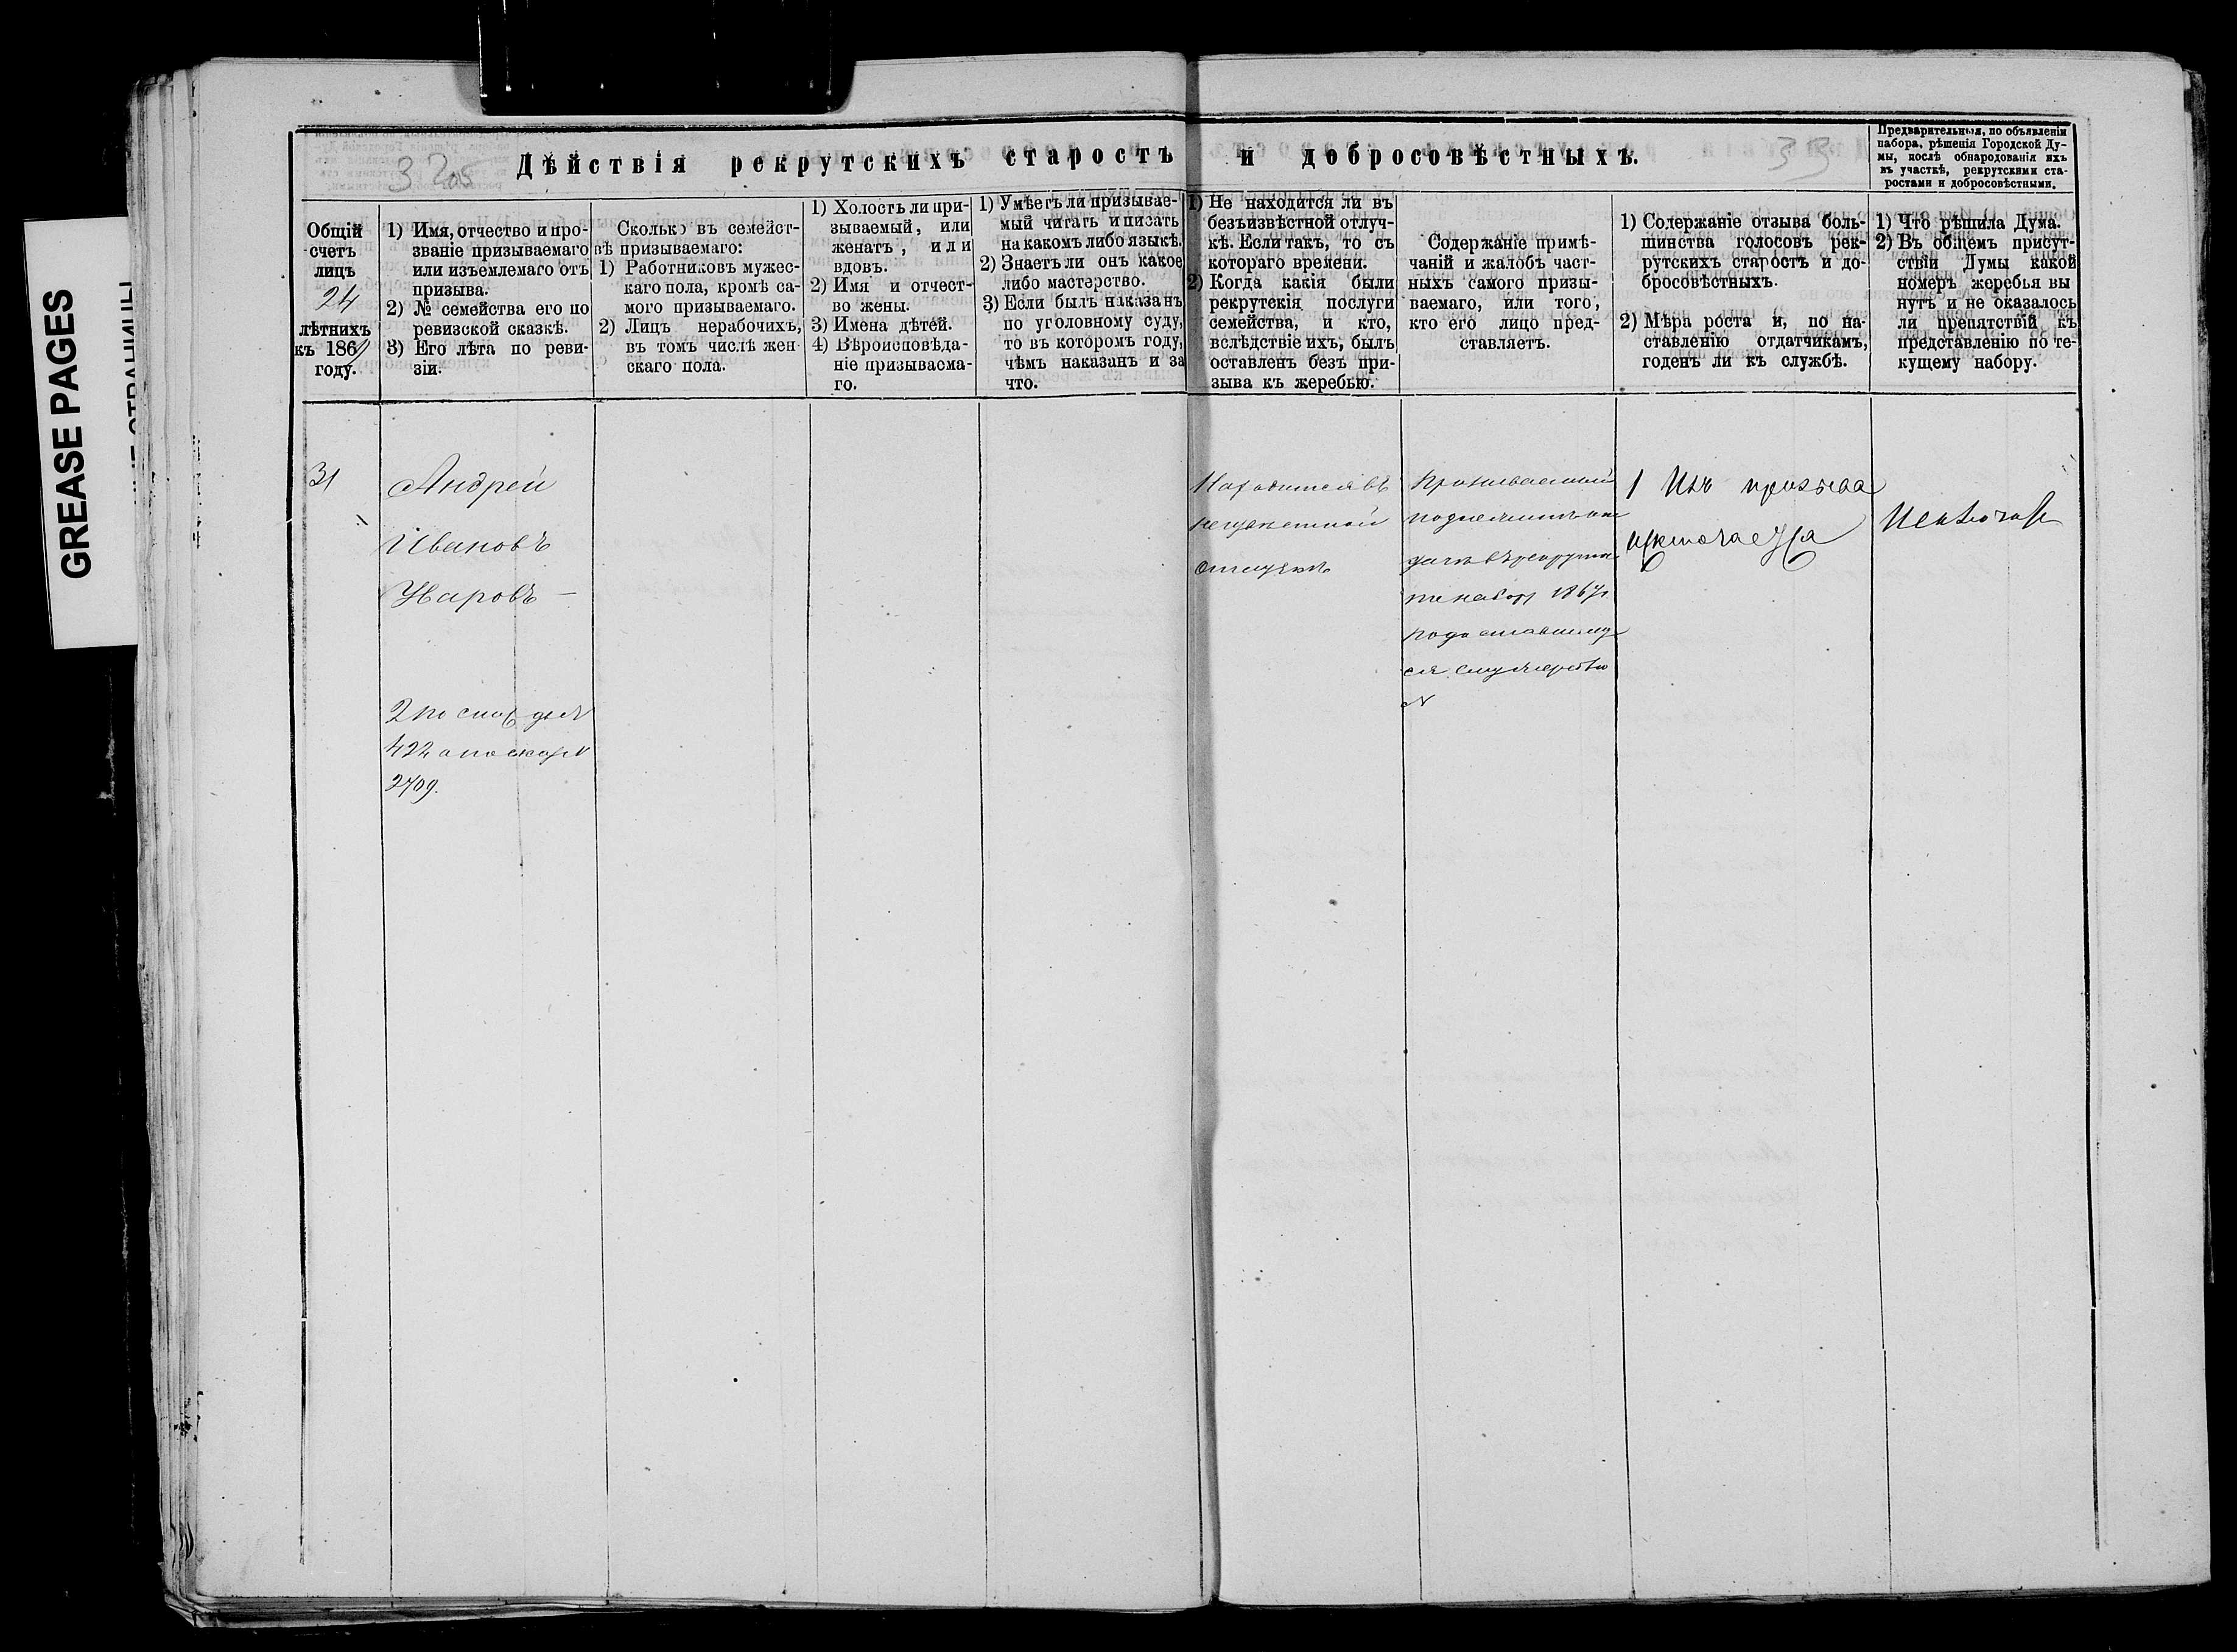 GREASE PAGES
32об
Дѣйствія рекрутскихъ старостъ и добросовѣстныхъ.
33
Предварительныя, по объявленіи
набора, рѣшенія Городской Ду-
мы, послѣ обнародованія ихъ
въ участкѣ, рекрутскими ста-
ростами и добросовѣстными.
Общій
счетъ
лицъ
24
лѣтнихъ
къ 1867
году.
1) Имя, отчество и про-
званіе призываемаго
или изъемлемаго отъ
призыва.
2) № семейства его по
ревизской сказкѣ.
3) Его лѣта по реви-
зіи.
Сколько въ семейст-
вѣ призываемаго:
1) Работниковъ мужес-
каго пола, кромѣ са-
мого призываемаго.
2) Лицъ нерабочихъ,
въ томъ числѣ жен
скаго пола.
1) Холостъ ли при-
зываемый, или
женатъ, или
вдовъ.
2) Имя и отчест-
во жены.
3) Имена дѣтей.
4) Вѣроисповѣда-
ніе призываема-
го.
1) Умѣетъ ли призывае-
мый читать и писать
на какомъ либо языкѣ.
2) Знаетъ ли онъ какое
либо мастерство.
3) Если былъ наказанъ
по уголовному суду,
то въ которомъ году,
чѣмъ наказанъ и за
что.
1) Не находится ли въ
безъизвѣстной отлуч-
кѣ. Если такъ, то съ
котораго времени.
2) Когда какія были
рекрутскія послуги
семейства, и кто,
вслѣдствіе ихъ, былъ
оставленъ безъ при-
зыва къ жеребью.
Содержаніе примѣ-
чаній и жалобъ част-
ныхъ самого призы-
ваемаго, или того,
кто его лицо пред-
ставляетъ.
1) Содержаніе отзыва боль-
шинства голосовъ рек-
рутскихъ старостъ и до-
бросовѣстныхъ.
2) Мѣра роста и, по на-
ставленію отдатчикамъ,
годенъ ли къ службѣ.
1) Что рѣшила Дума.
2) Въ общемъ присут-
ствіи Думы какой
номеръ жеребья вы
нутъ и не оказалось
ли препятствій къ
представленію по те-
кущему набору.
31
Андрей
Ивановъ
Уваровъ
2 по
422 а по сказ N
2709.
Находится въ
отлучкѣ
1867г.
N
1 Изъ призыва
исключается